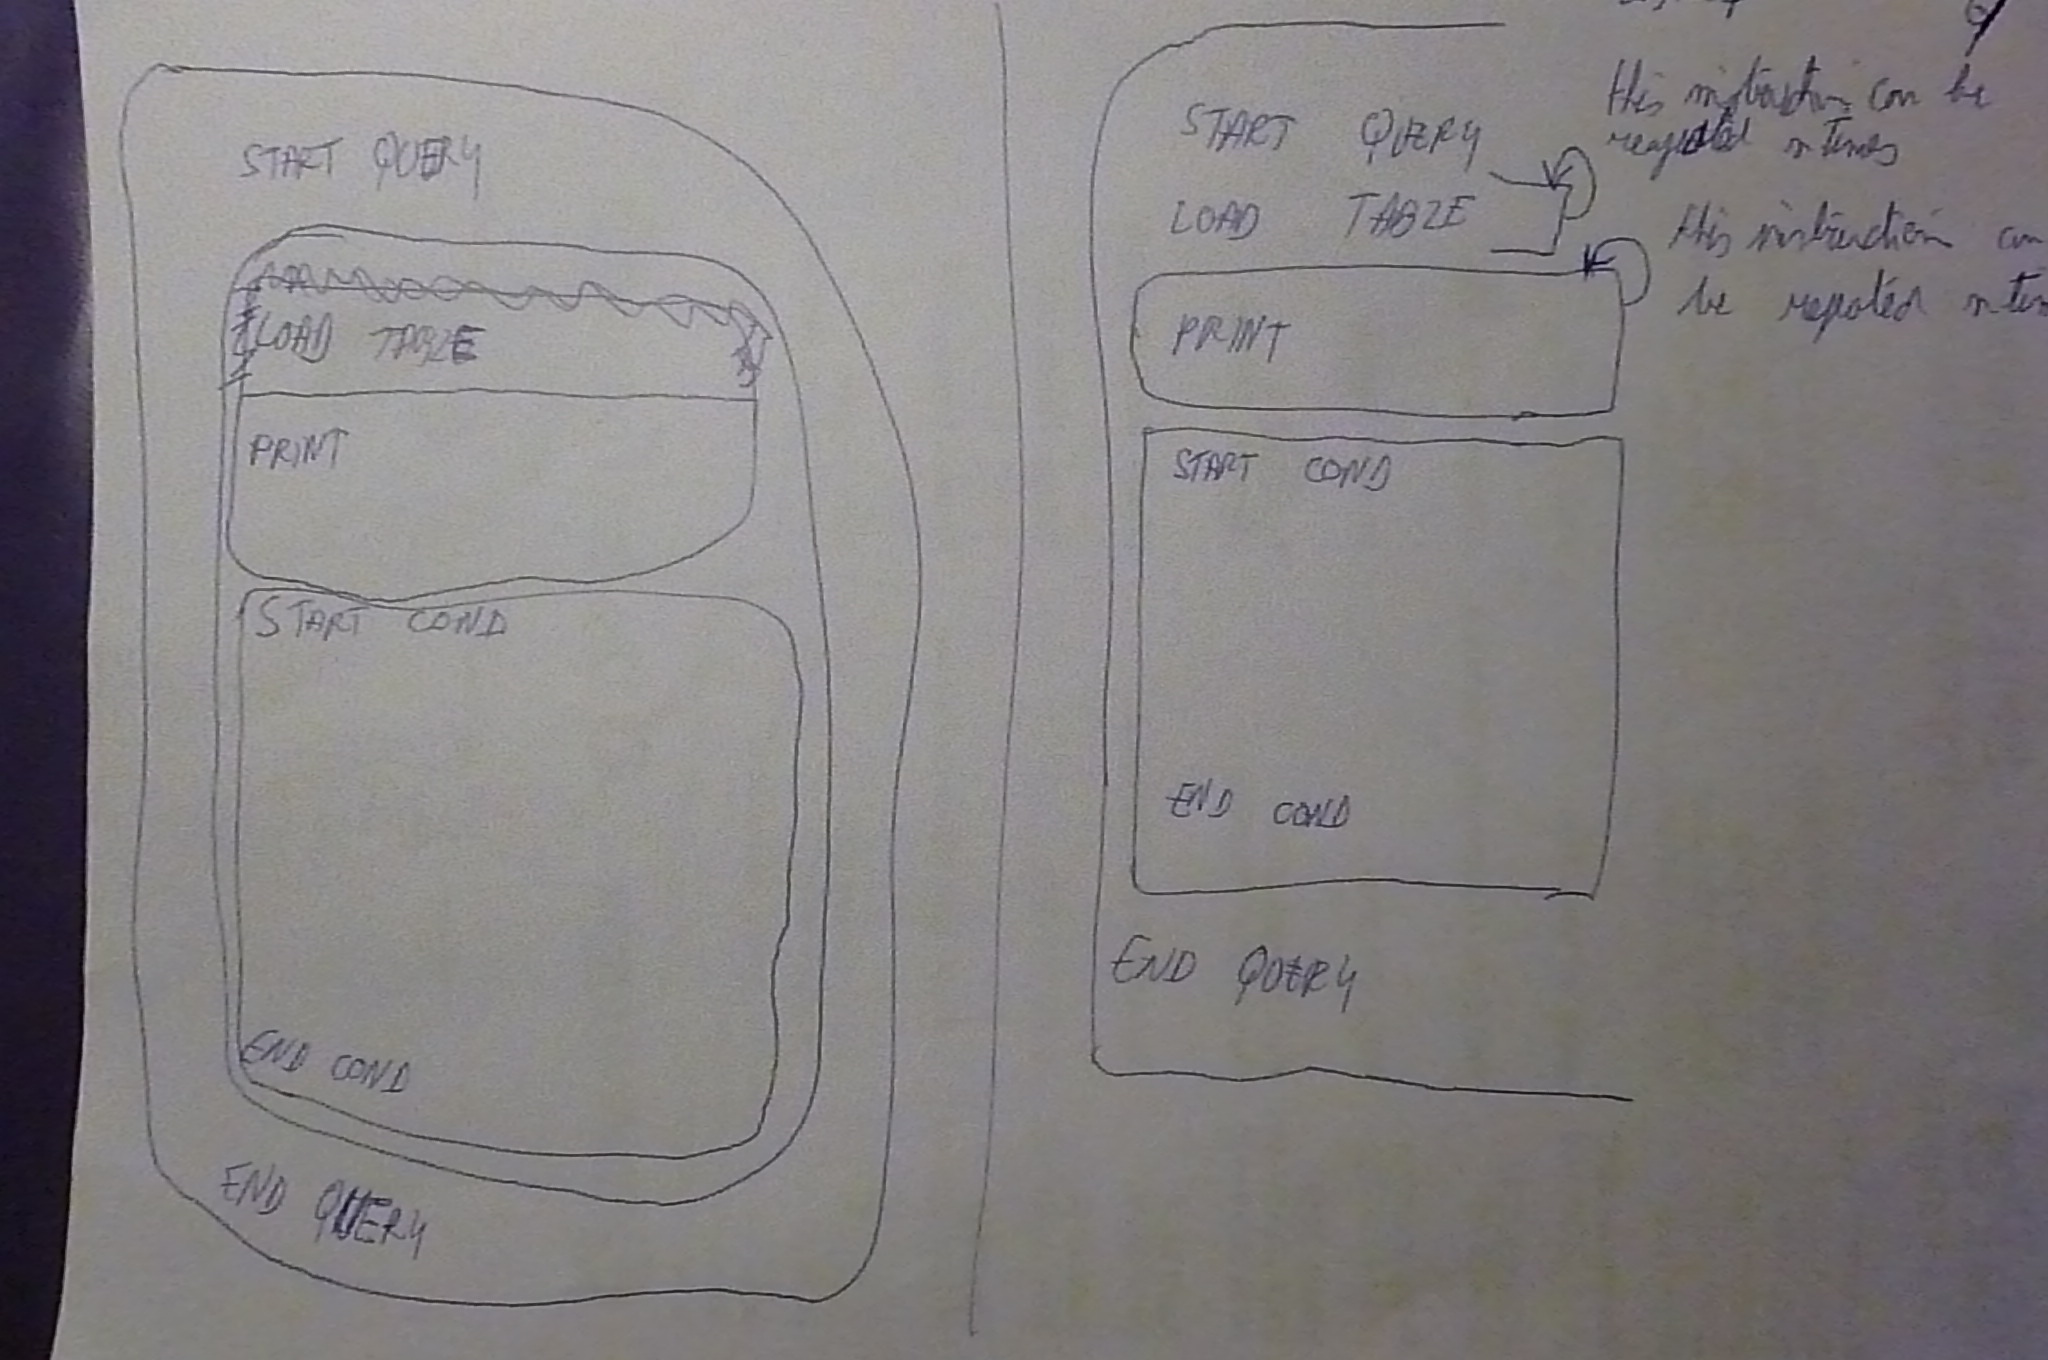 START QUERY
LOAD TABLE
PRINT
START COND
END COND
END QUERY
START QUERY
LOAD TABLE
this instruction can be
repeated n times
this instruction can
be repeated n tim
PRINT
START COND
END COND
END QUERY